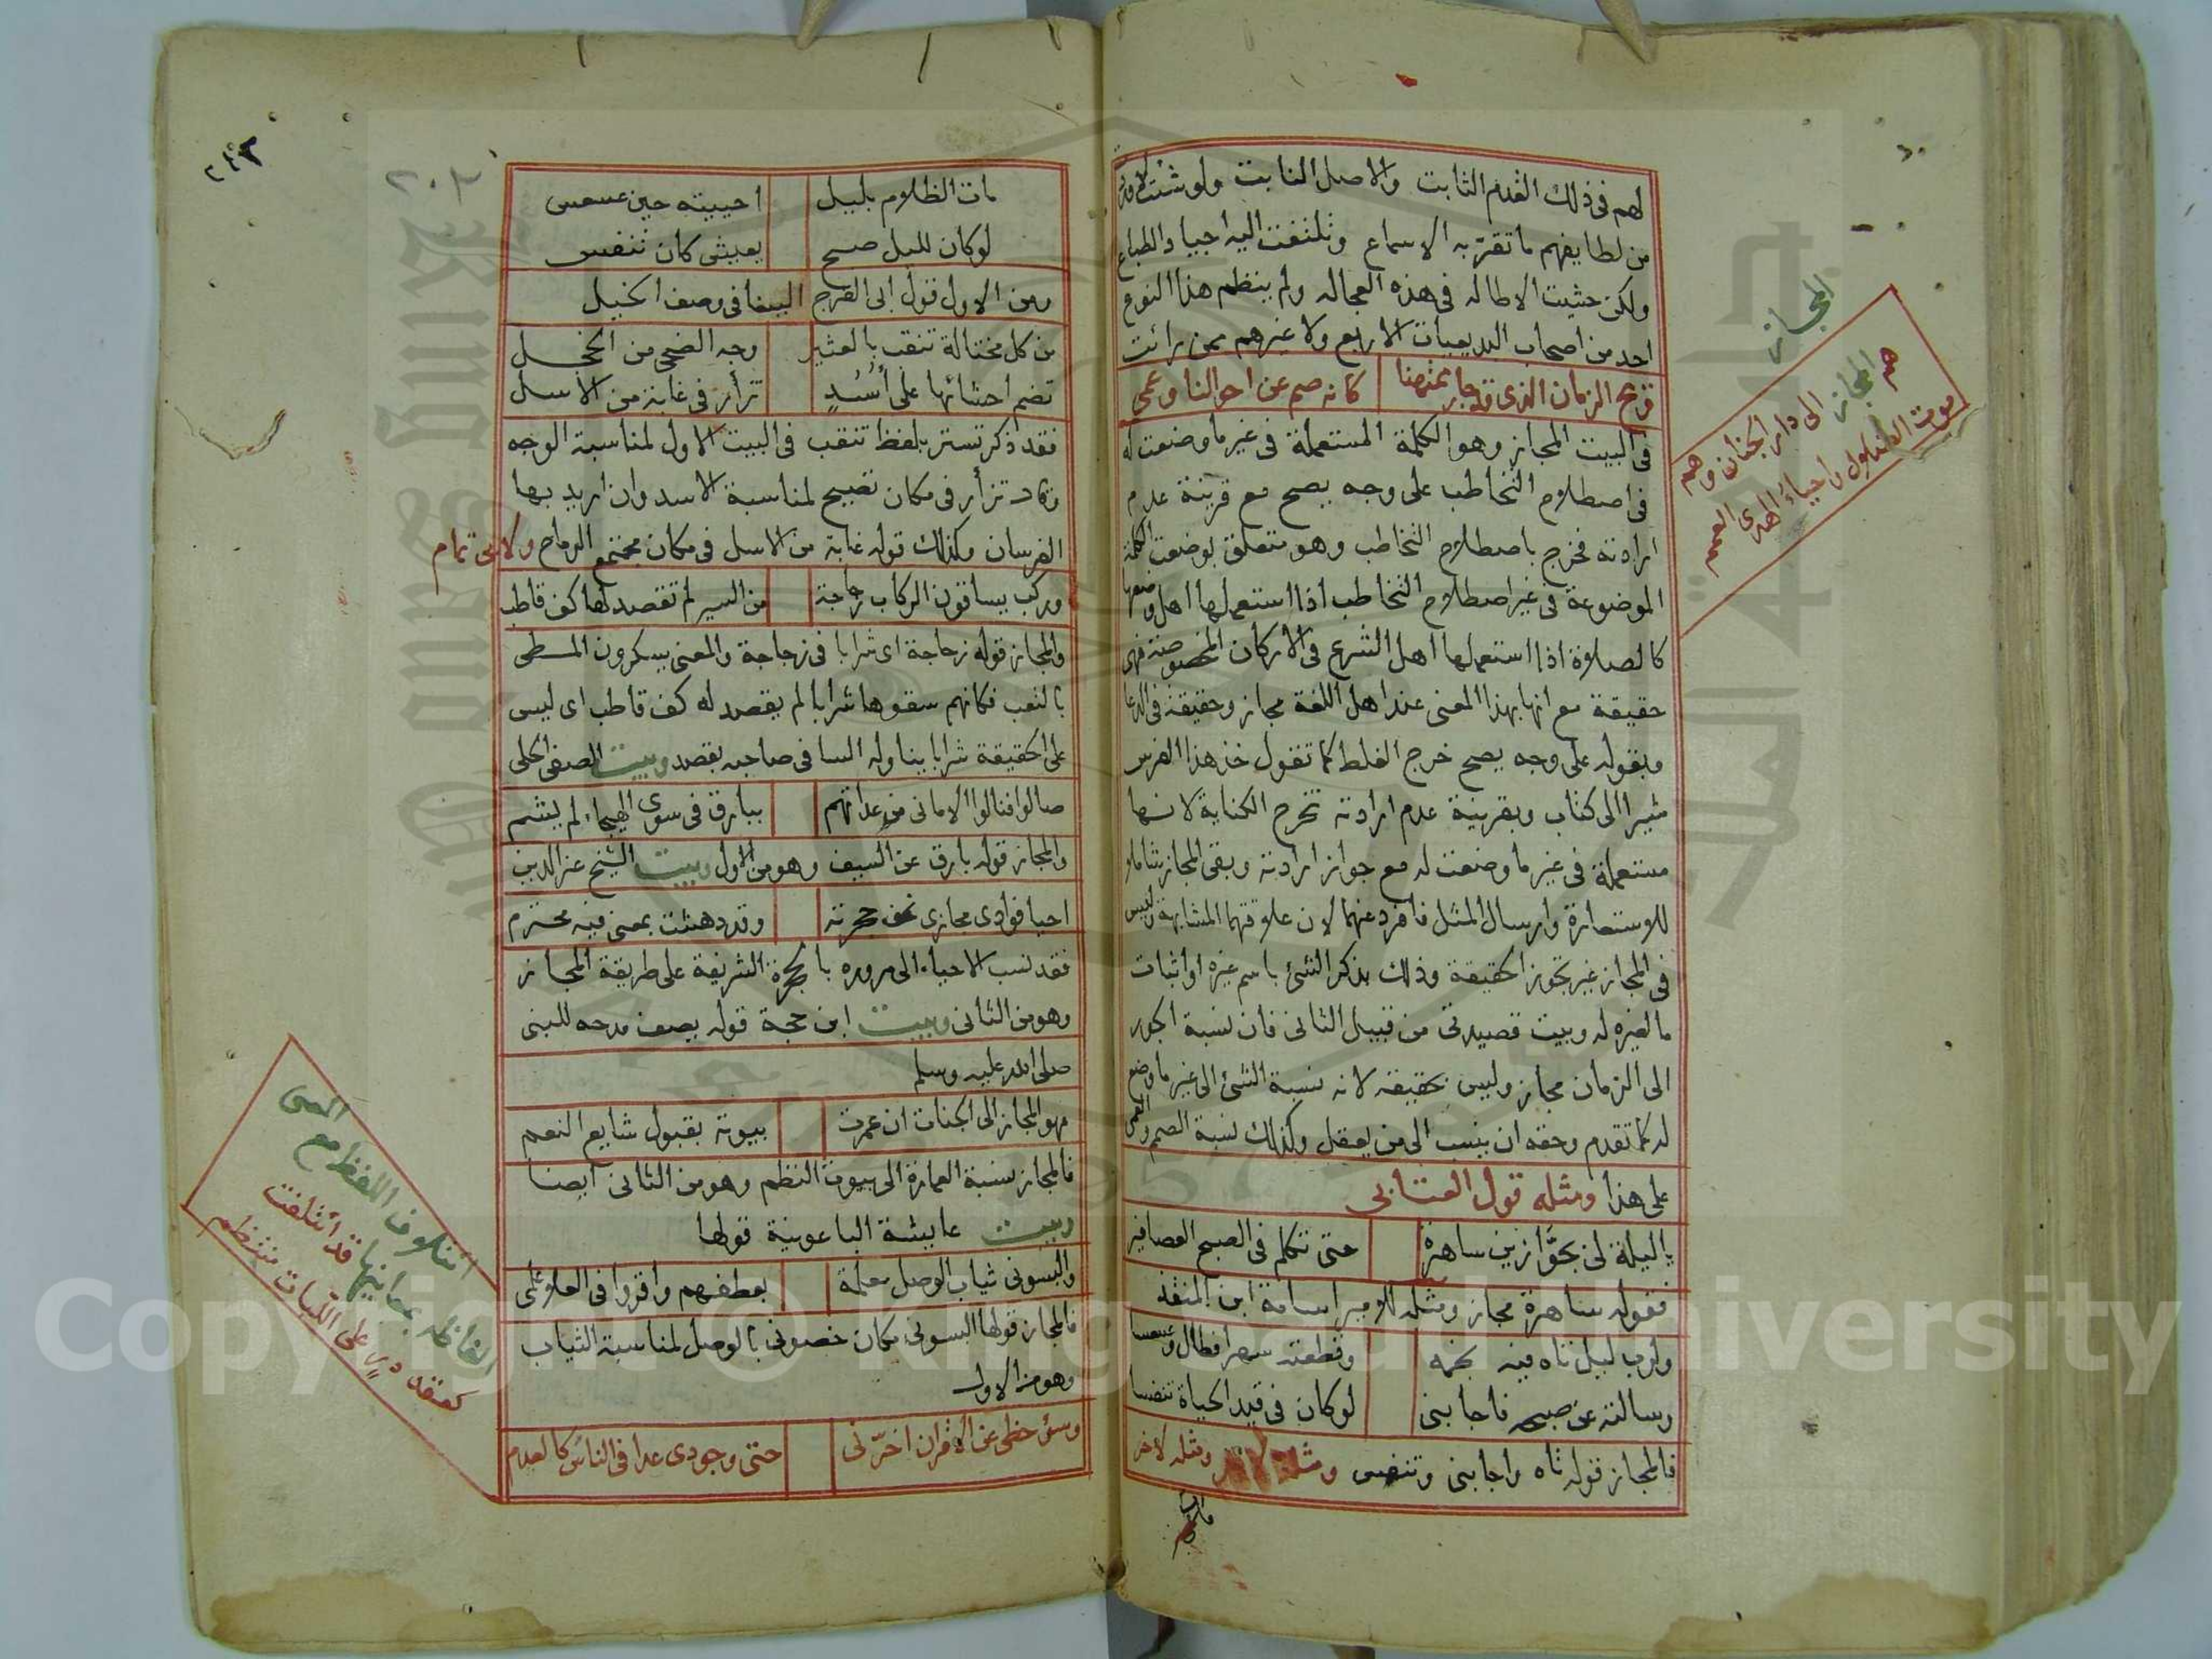 لهم فى ذلك القدم الثابت والاصل النابت ولو شئت لاوردت
من لطايفهم ما تقرّ به الاسماع وتلتفت اليه اجياد الطباع
ولكن خشيت الاطاله فى هذه العجاله ولم ينظم هذا النوع
احد من اصحاب البديعيات الاربع ولا غيرهم ممن رائت
كانه صم عن احوالنا وعمى
فى البيت المجاز وهو الكلمة المستعملة فى غير ما وضعت له
فى اصطلاح التخاطب على وجه يصح مع قرينة عدم
ارادته فخرج باصطلاح التخاطب وهو متعلق بوضعت الكلمة
الموضوعة فى غير اصطلاح التخاطب اذا استعملها اهل وضعها
كالصلاة اذا استعملها اهل الشرع فى الاركان المخصوصة فهى
حقيقة مع انها بهذا المعنى عند اهل اللغة مجاز وحقيقة فى الدعا
وبقوله على وجه يصح خرج الغلط كما تقول خذ هذا الفرس
مشيرا الى كتاب وبقرينة عدم ارادته تخرج الكناية لانها
مستعملة فى غير ما وضعت له مع جواز ارادته وبقى المجاز شاملا
للاستعارة وارسال المثل فافرد عنهما لان علاقتهما المشابهة وليس
فى المجاز غير تجوز الحقيقة وذلك بذكر الشئ باسم غيره او اثبات
ما لغيره له وبيت قصيدتى من قبيل الثانى فان نسبة الجور
الى الزمان مجاز وليس بحقيقة لانه نسبة الشئ الى غير ما وضع
له كما تقدم وحقه ان ينسب الى من يعقل وكذلك نسبة الصم والعمى
على هذا ومثله قول العتابى
يا ليلة لى بحوّارين ساهرة حتى تكلم فى الصبح العصافير
فقوله ساهرة مجاز ومثله للامير اسامة ابن المنقذ
ولرب ليل تاه فيه نجمه وقطعته سهرا فطال وعسعسا
وسالته عن صبحه فاجابنى لو كان فى قيد الحياة تنفسا
فالمجاز قوله تاه واجابنى وتنفس ومثله لاخر
المجاز
هم المجاز الى دار الجنان وهم
مات الظلام بليل احييته حين عسعس
لو كان لليل صبح يعيش كان تنفس
ومن الاول قول ابى الفرج الببغا فى وصف الخيل
من كل مختالة تنقب بالعثير وجه الضحى من الخجل
تضم احشائها على أُسُدٍ تزأر فى غابة من الاسل
فقد ذكر تستر بلفظ تنقب فى البيت الاول لمناسبة الوجه
وكذ تزأر فى مكان تصيح لمناسبة الاسد وان اريد بها
الفرسان وكذلك قوله غابة من الاسل فى مكان مجتمع الرماح ولابى تمام
وركب يساقون الركاب زجاجة من السير لم تقصد لها كف قاطب
والمجاز قوله زجاجة اى شرابا فى زجاجة والمعنى يسكرون المطى
بالتعب فكانهم سقوها شرابا لم يقصد له كف قاطب اى ليس
على الحقيقة شرابا يناوله الساقى صاحبه بقصد وبيت الصفى الحلى
صالوا فنالوا الامانى من عداتهم ببارق فى سوى الهيجاء لم يشم
والمجاز قوله بارق عن السيف وهو من الاول وبيت الشيخ عز الدين
احيا فوادى مجازى نحو حجرته وقد دهشت بمعنى فيه محترم
فقد نسب الاحياء الى مروره بالحجرة الشريفة على طريقة المجاز
وهو من الثانى وبيت ابن حجة قوله يصف مدحه للنبى
صلى الله عليه وسلم
فهو المجاز الى الجنات ان عمرت بيوته بقبول شايع النعم
فالمجاز نسبة العمارة الى بيوت النظم وهو من الثانى ايضا
وبيت عايشة الباعونية قولها
والبسونى ثياب الوصل معلمة بعطفهم واقروا فى العلا على
فالمجاز قولها البسونى مكان خصونى بالوصل لمناسبة الثياب
وهو من الاول
وسؤ حظى عن الاقران اخرّنى حتى وجودى عدا فى الناس كالعدم
ائتلاف اللفظ مع المعنى
الفاظه بمعانيها قد ائتلفت
كعقد در على اللبات منتظم